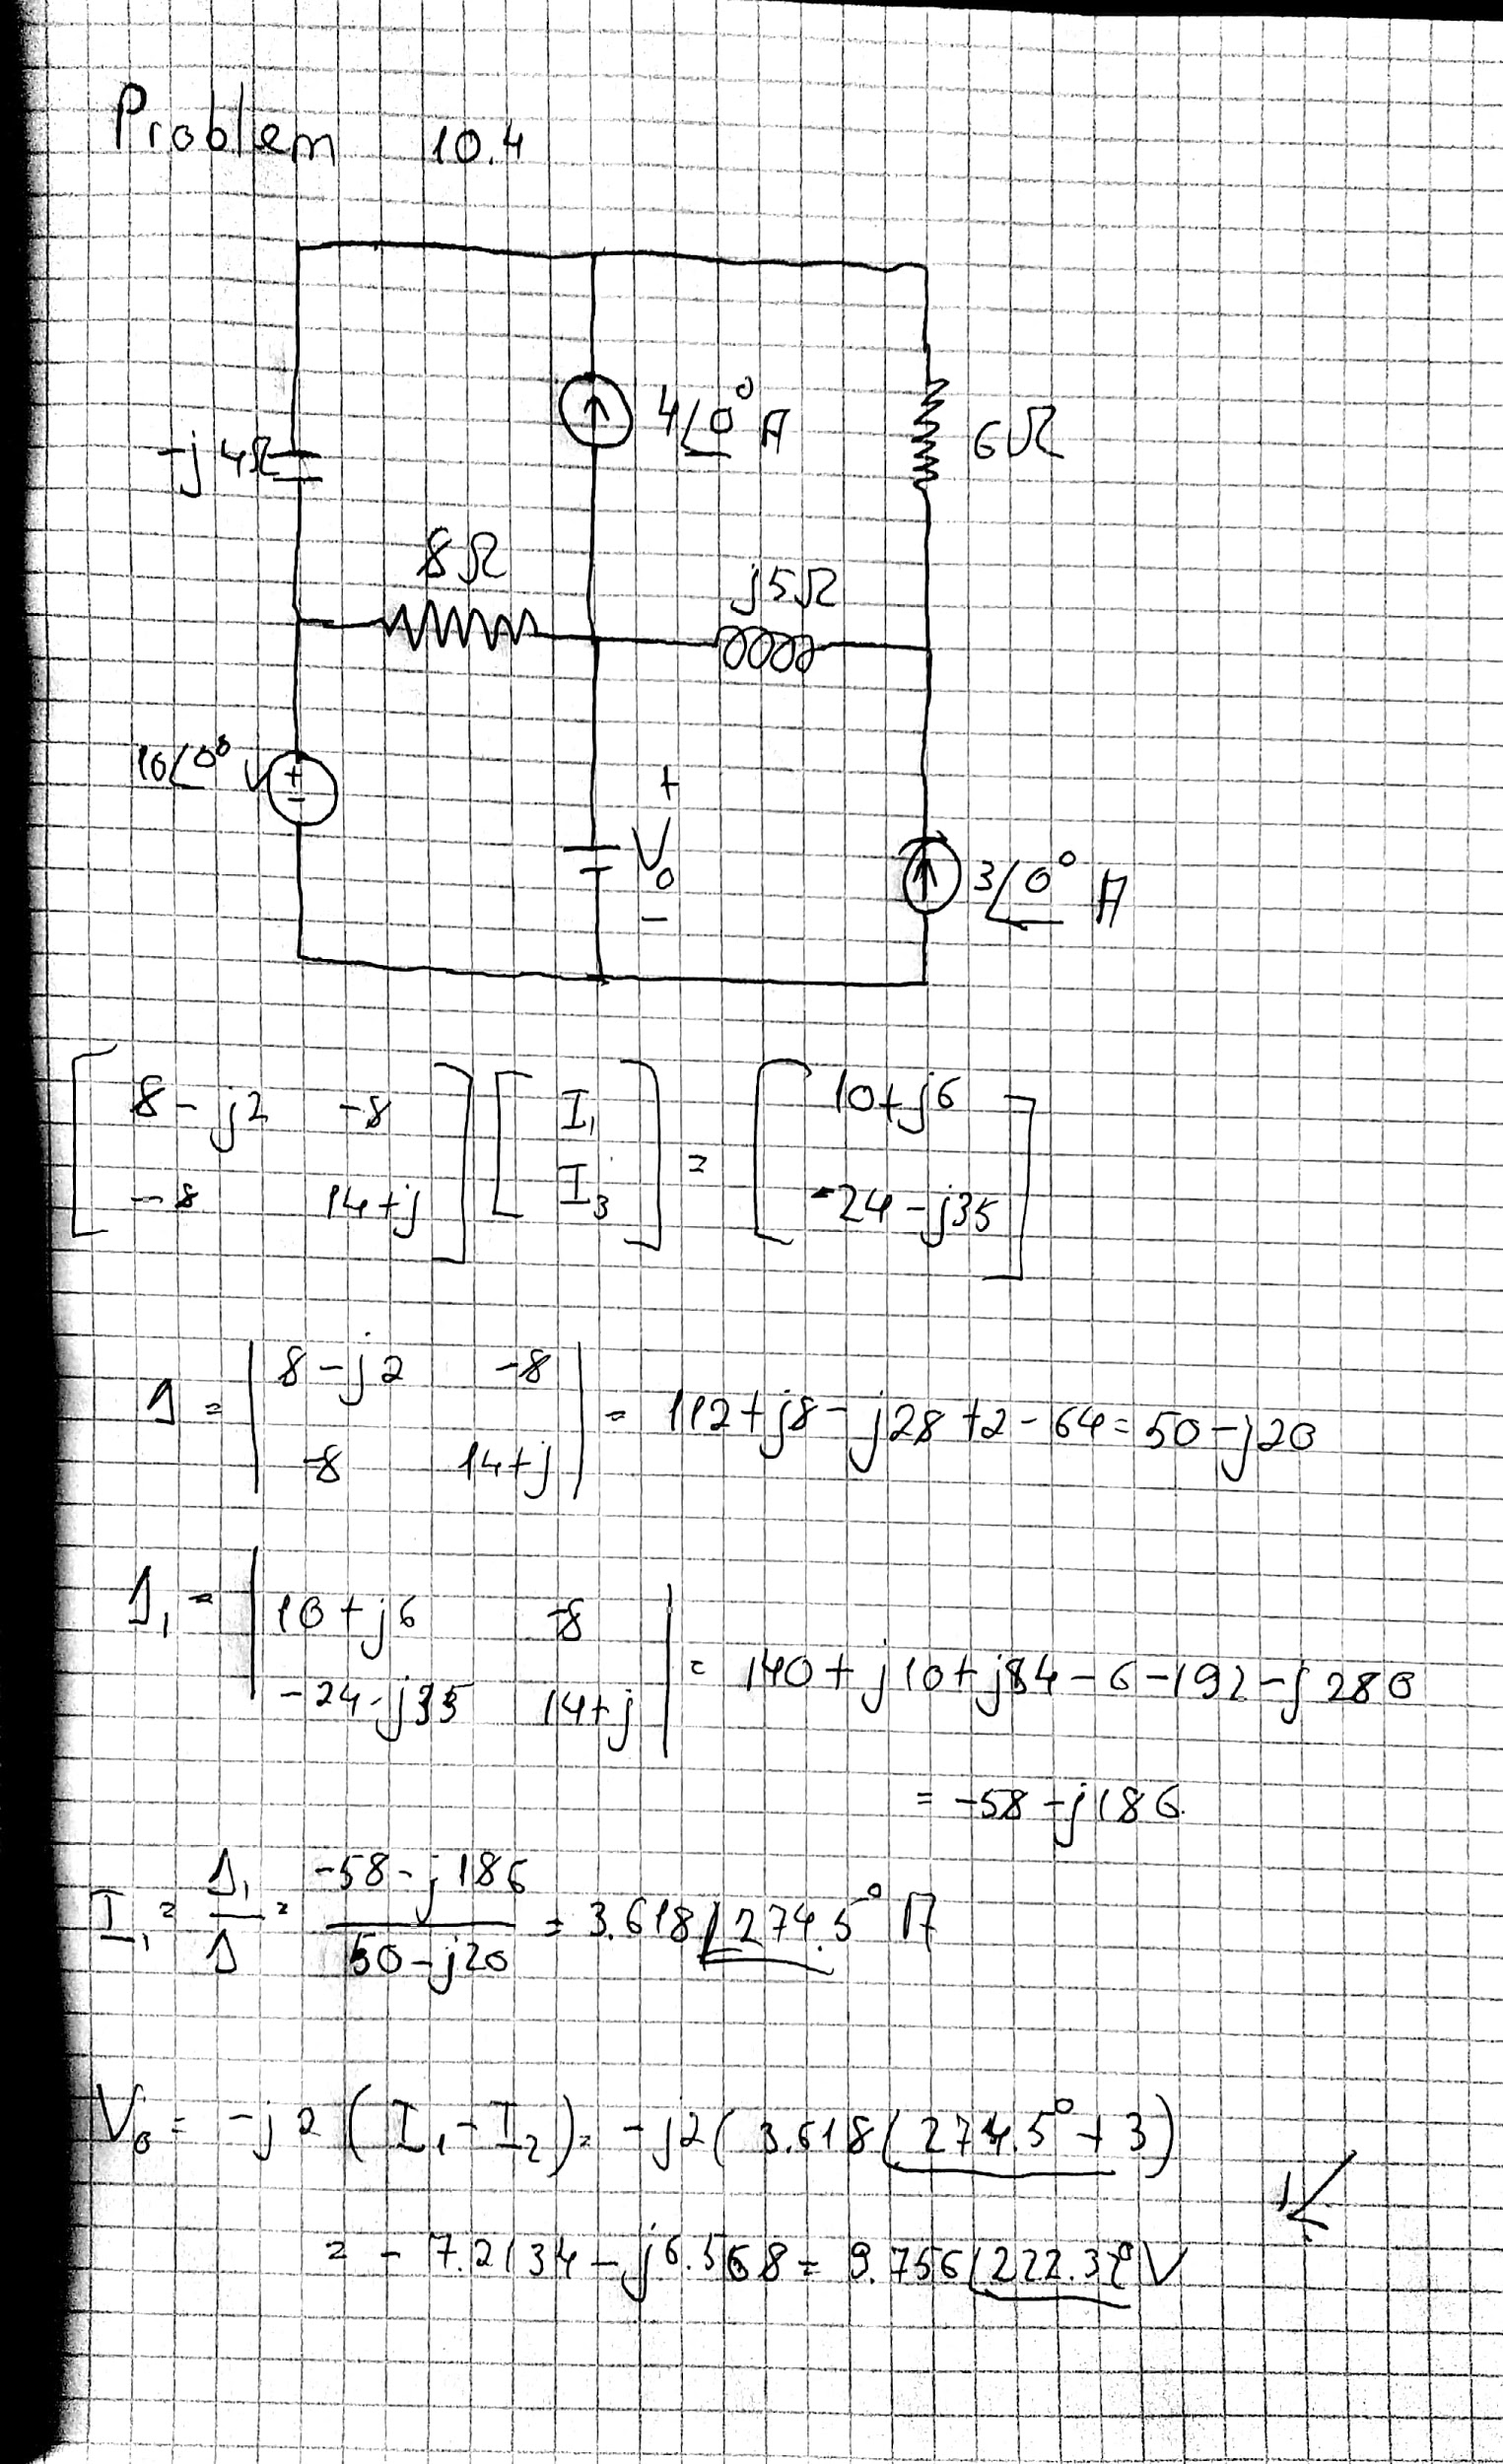 Problem 10.4
4∠0° A
-j4Ω
6Ω
8Ω
j5Ω
10∠0° V
+
-
+
V₀
-
3∠0° A
[8-j2 -8; -8 14+j] [I₁; I₃] = [10+j6; -24-j35]
Δ = |8-j2 -8; -8 14+j| = 112+j8-j28+2-64=50-j20
Δ₁ = |10+j6 -8; -24-j35 14+j| = 140+j10+j84-6-192-j280
= -58-j186
I₁ = Δ₁/Δ = (-58-j186)/(50-j20) = 3.618∠274.5° A
V₀ = -j2(I₁-I₂) = -j2(3.618∠274.5°+3)
= -7.2134-j6.568 = 9.756∠222.32° V